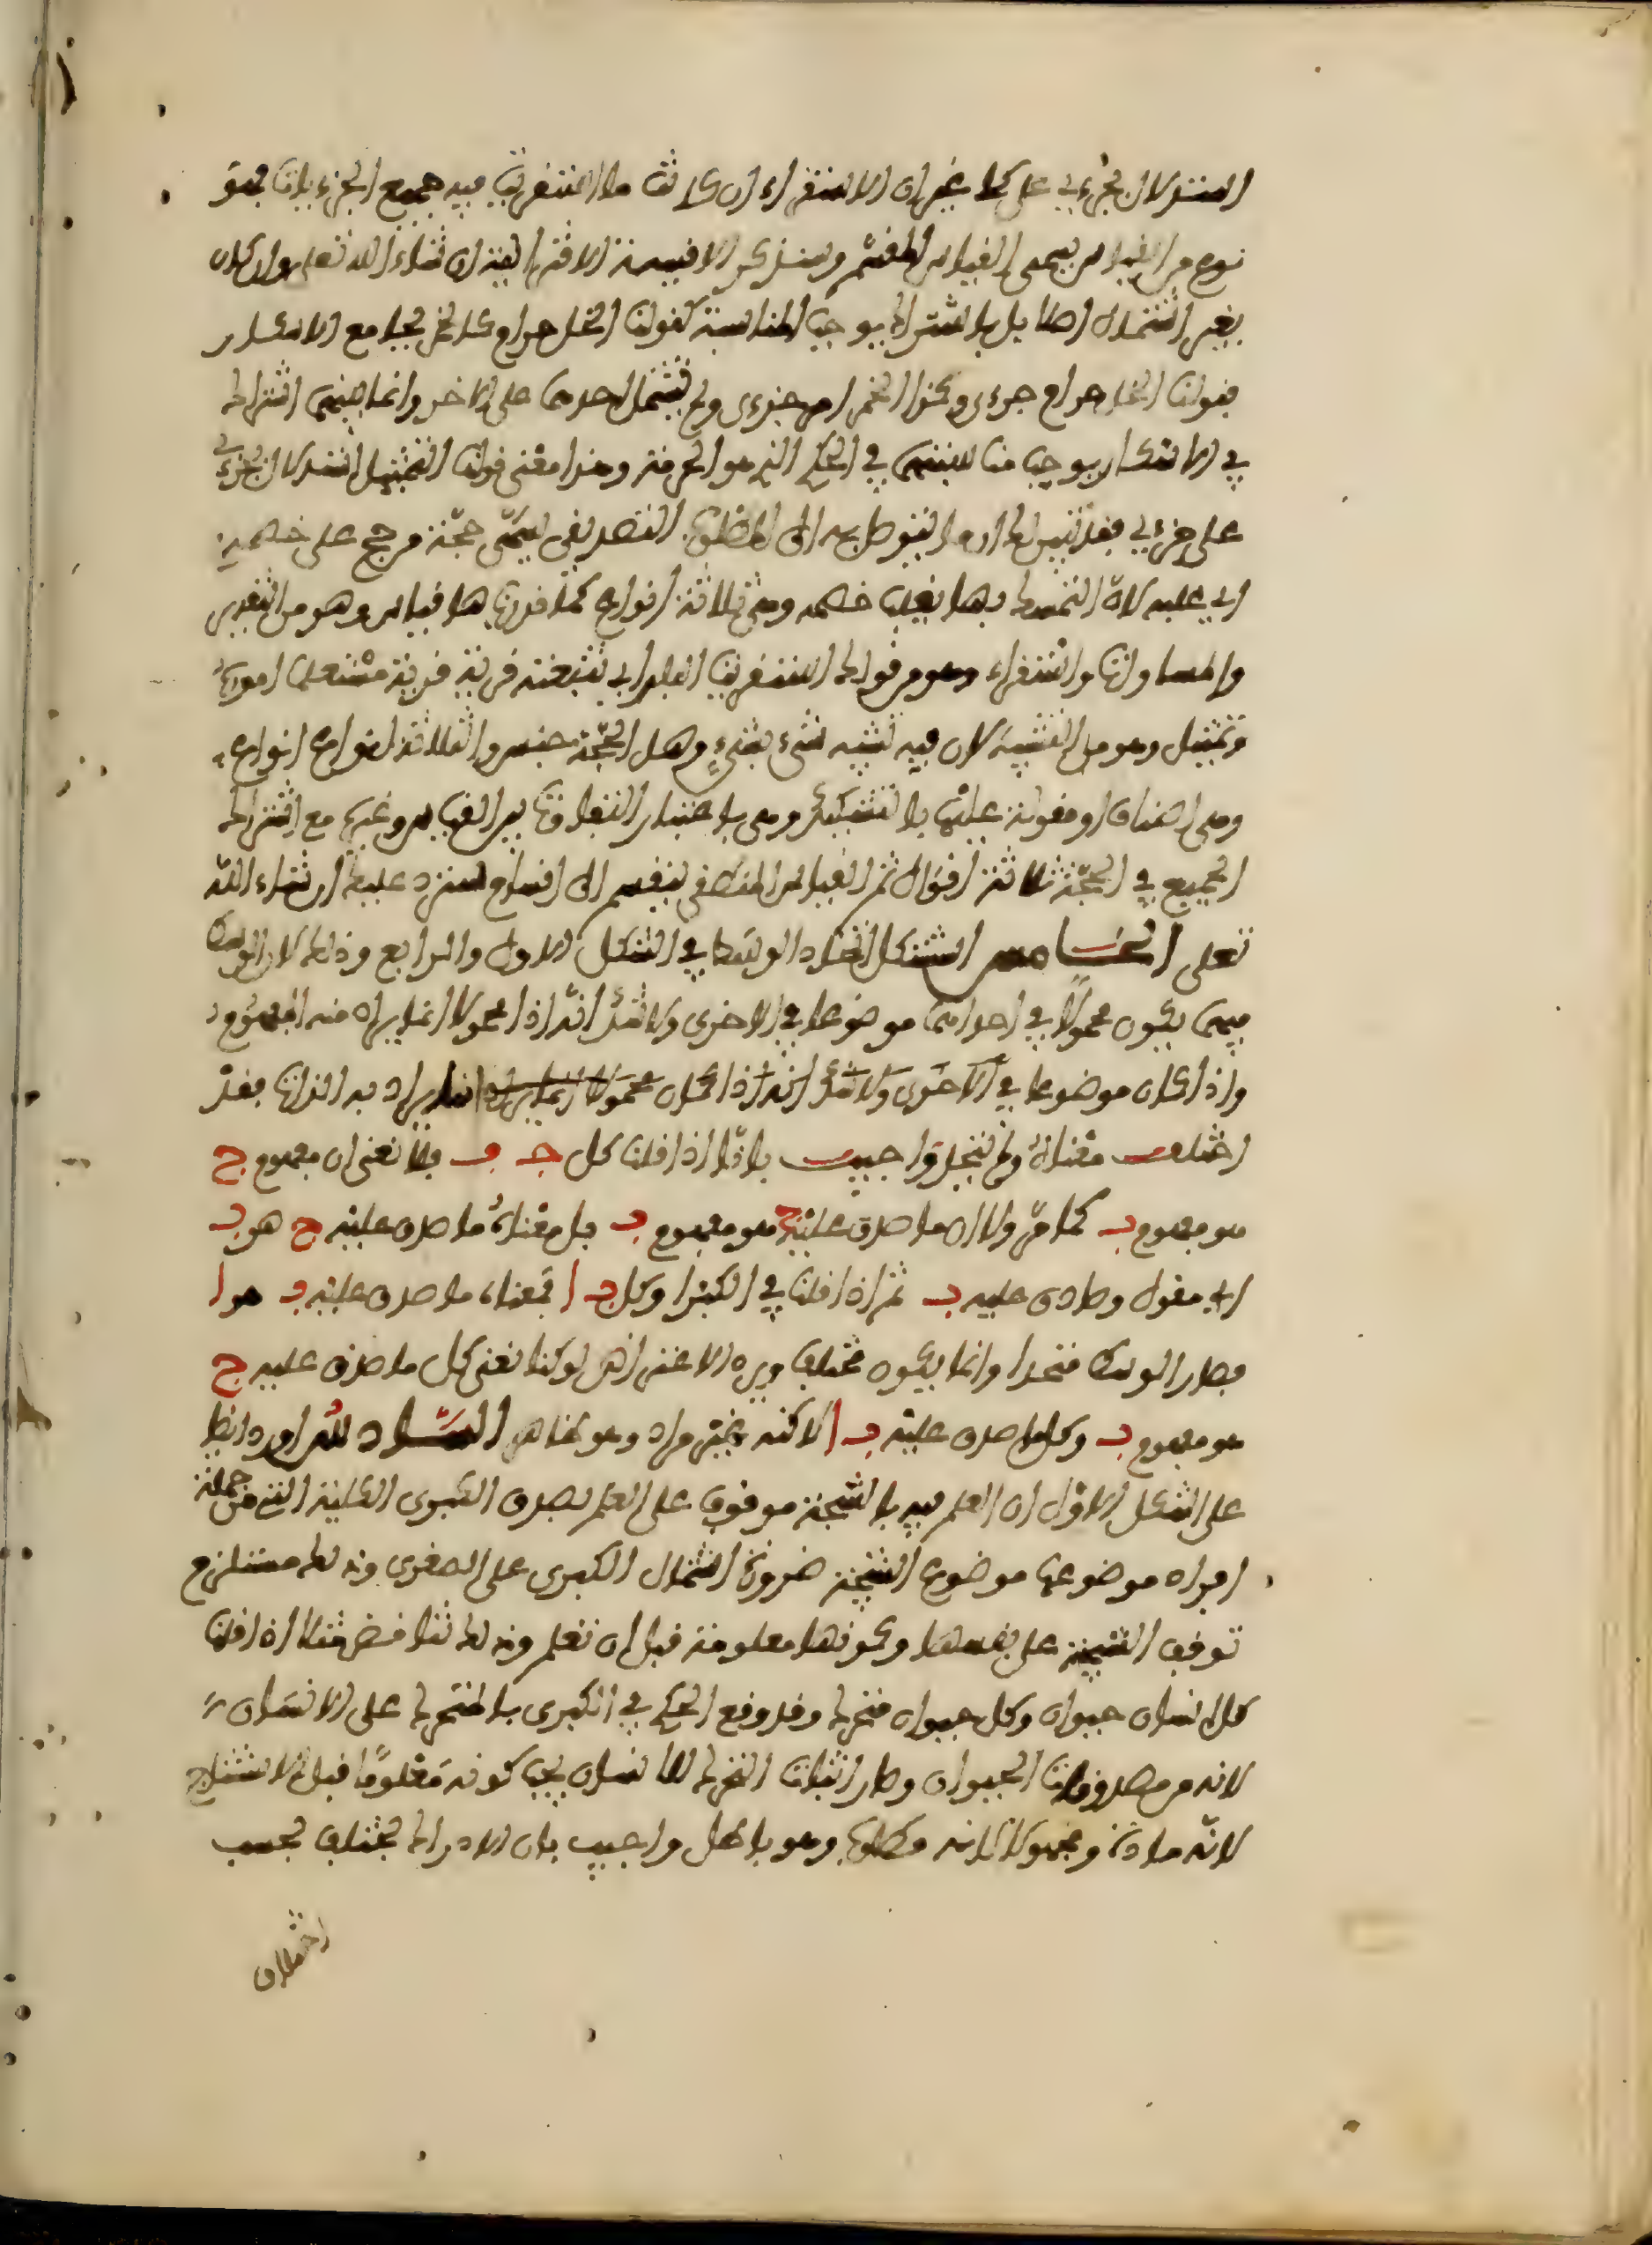 استدلال بجزءي على كلي غير ان الاستقراء ان كانت ما استقريت فيه جميع الجزءيات فهو
نوع من القياس يسمى القياس المقسم وسنذكر الاقيسة الاقترانية ان شاء الله تعلى وان كان
بغير اشتمال اصلا بل باشتراك يوجب المناسبة كقولنا الخل حرام كالخمر بجامع الاسكار
فقولنا الخل حرام جزءي وكذا الخمر امر جزءي ولم يشتمل احدهما على الاخر وانما بينهما اشتراك
في الاسكار يوجب مناسبتهما في الحكم الذي هو الحرمة وهذا معنى قولنا التمثيل استدلال بجزءي
على جزءي فقد تبين لك ان ما يتوصل به الى المطلوب التصديقي يسمى حجة من حج على خصمه
اي عليه لان التمسك بها يغلب خصمه وهي ثلاثة انواع كما قررناها قياس وهو من التقدير
والمساوات واستقراء وهو من قولك استقريت البلد اي تتبعته قرية قرية مستعلما امورها
وتمثيل وهو من التشبيه لان فيه تشبيه شيء بشيء وهل الحجة جنس والثلاثة انواع انواع
وهي اصناف او مقولة عليها بالتشكيك وهي باعتبار التفاوت بين القياس وغيره مع اشتراك
الجميع في الحجة ثلاثة اقوال ثم القياس المنطقي ينقسم الى اقسام سنزد عليك ان شاء الله
تعلى الخامس استشكل اتحاد الوسط في الشكل الاول والرابع وذلك لان الوسط
فيهما يكون محمولا في احداهما موضوعا في الاخرى ولا شك انه اذا محمولا انما يراد منه المفهوم
واذا كان موضوعا في الاخرى ولا شك انه اذا كان محمولا انما يراد انما يراد به الذات فقد
اختلف معناه ولم يتحد واجيب بانا اذا قلنا كل ج ب فلا نعني ان مفهوم ج
هو مفهوم ب كما مر ولا ان ما صدق عليه ج هو مفهوم ب بل معناه ما صدق عليه ج هو ب
اي مقول وصادق عليه ب ثم اذا قلنا في الكبرا وكل ب ا فمعناه ما صدق عليه ب هو ا
فصار الوسط متحدا وانما يكون مختلفا ويرد الاعتراض لو كنا نعني كل ما صدق عليه ج
هو مفهوم ب وكل ما صدق عليه ب ا لاكنه غير مراد وهو ظاهر السادس اورد ايضا
على الشكل الاول ان العلم فيه بالنتيجة موقوف على العلم بصدق الكبرى الكلية التي من جملة
افراد موضوعها موضوع النتيجة ضرورة اشتمال الكبرى على الصغرى وذلك مستلزم
توقف النتيجة على نفسها وكونها معلومة قبل ان تعلم وذلك تناقض مثلا اذا قلنا
كل انسان حيوان وكل حيوان متحرك وقد وقع الحكم في الكبرى بالمتحرك على الانسان
لانه من مصدوقات الحيوان وصار اثبات التحرك للانسان يجب كونه معلوما قبل الاستنتاج
لانه مادة ومجهولا لانه مطلوب وهو باطل واجيب بان الادراك يختلف بحسب
اختلاف